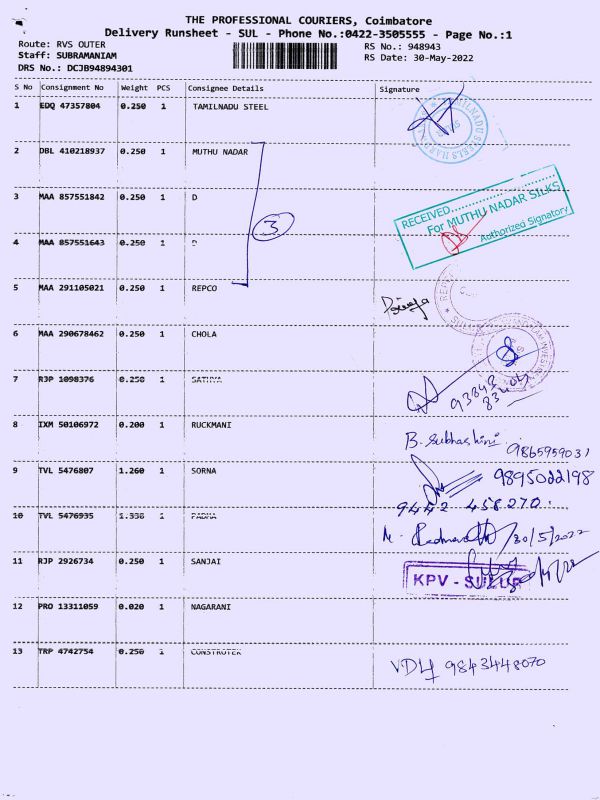 THE PROFESSIONAL COURIERS, Coimbatore
Delivery Runsheet - SUL - Phone No.:0422-3505555 - Page No.:1
Route: RVS OUTER
RS No.: 948943
Staff: SUBRAMANIAM
RS Date: 30-May-2022
DRS No.: DCJB94894301
S No Consignment No Weight PCS Consignee Details Signature
1 EDQ 47357804 0.250 1 TAMILNADU STEEL
2 DBL 410218937 0.250 1 MUTHU NADAR
3 MAA 857551842 0.250 1 D
RECEIVED
For MUTHU NADAR SILKS
Authorized Signatory
3
4 MAA 857551643 0.250 1 D
5 MAA 291105021 0.250 1 REPCO
6 MAA 290678462 0.250 1 CHOLA
7 RJP 1098376 0.250 1 SATHYA
93843
8 IXM 50106972 0.200 1 RUCKMANI
B. Subhashini 9865959031
9 TVL 5476807 1.260 1 SORNA
9895022198
9442 458270
10 TVL 5476935 1.330 1 PADMA
30/5/2022
11 RJP 2926734 0.250 1 SANJAI
KPV - SULUR
12 PRO 13311059 0.020 1 NAGARANI
13 TRP 4742754 0.250 1 CONSTROTEK
9843448070